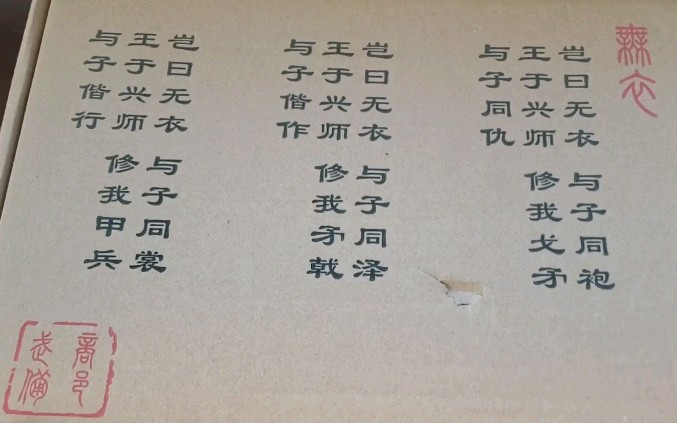 無衣
岂曰无衣 与子同袍
王于兴师 修我戈矛
与子同仇
岂曰无衣 与子同泽
王于兴师 修我矛戟
与子偕作
岂曰无衣 与子同裳
王于兴师 修我甲兵
与子偕行
商邑
武備